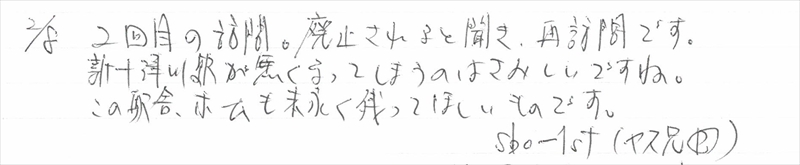 2/8 2回目の訪問。廃止されると聞き、再訪問です。
新十津川駅が悪くなってしまうのはさみしいですね。
この駅舎、ホームも末永く残ってほしいものです。
sho-1st (ヤス兄